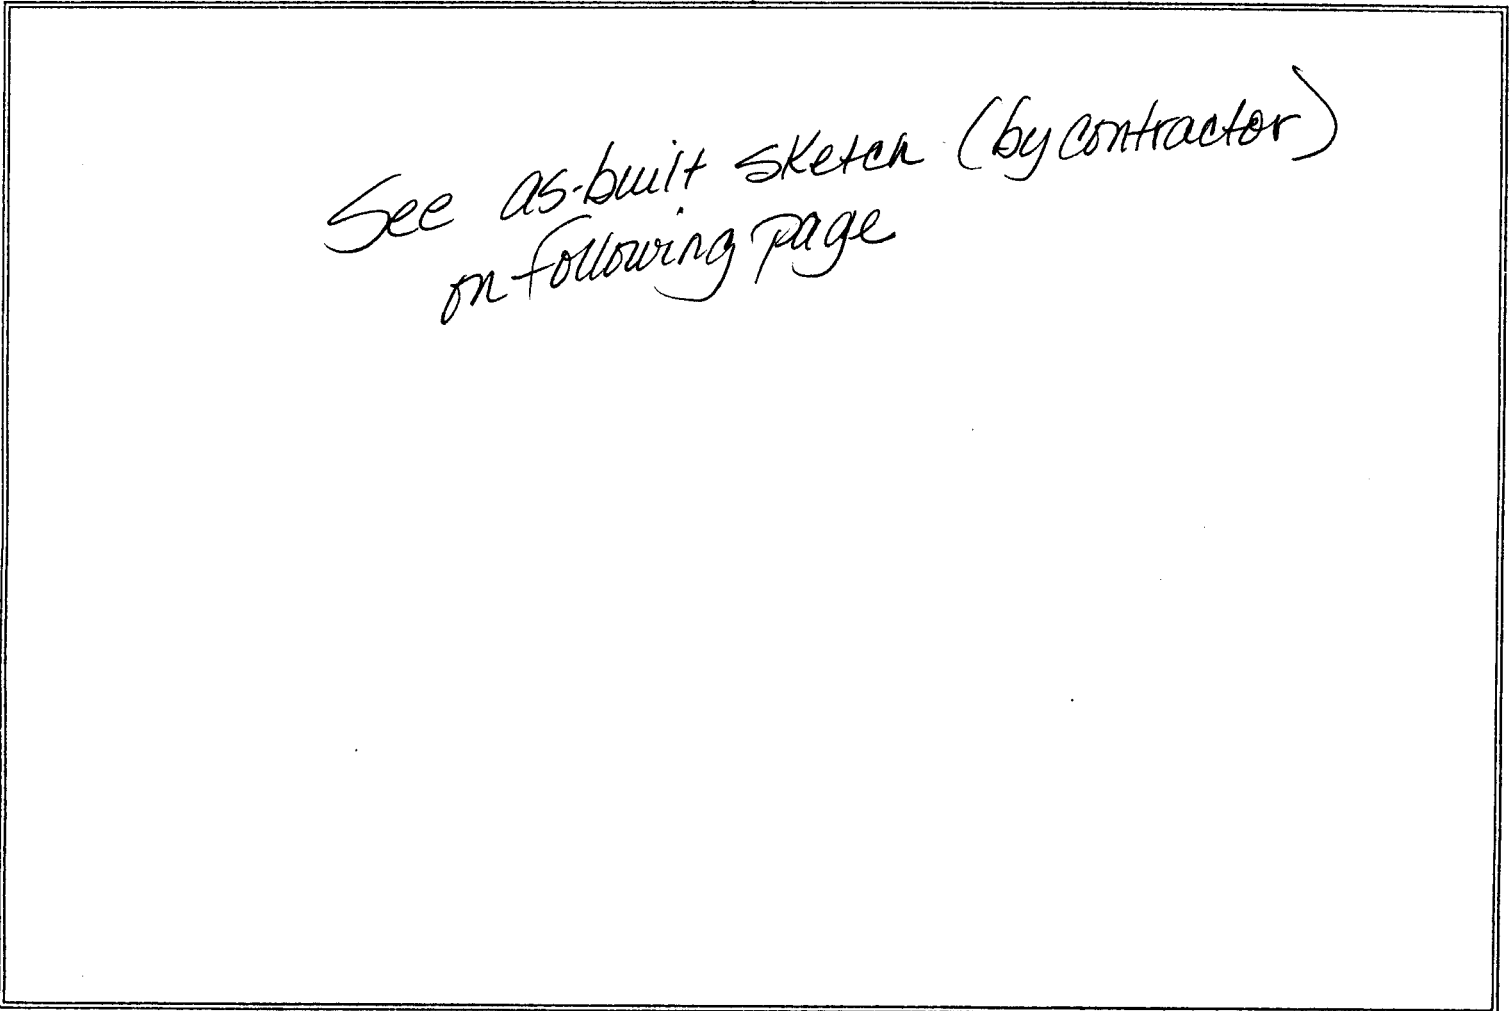 See as-built sketch (by contractor)
on following page